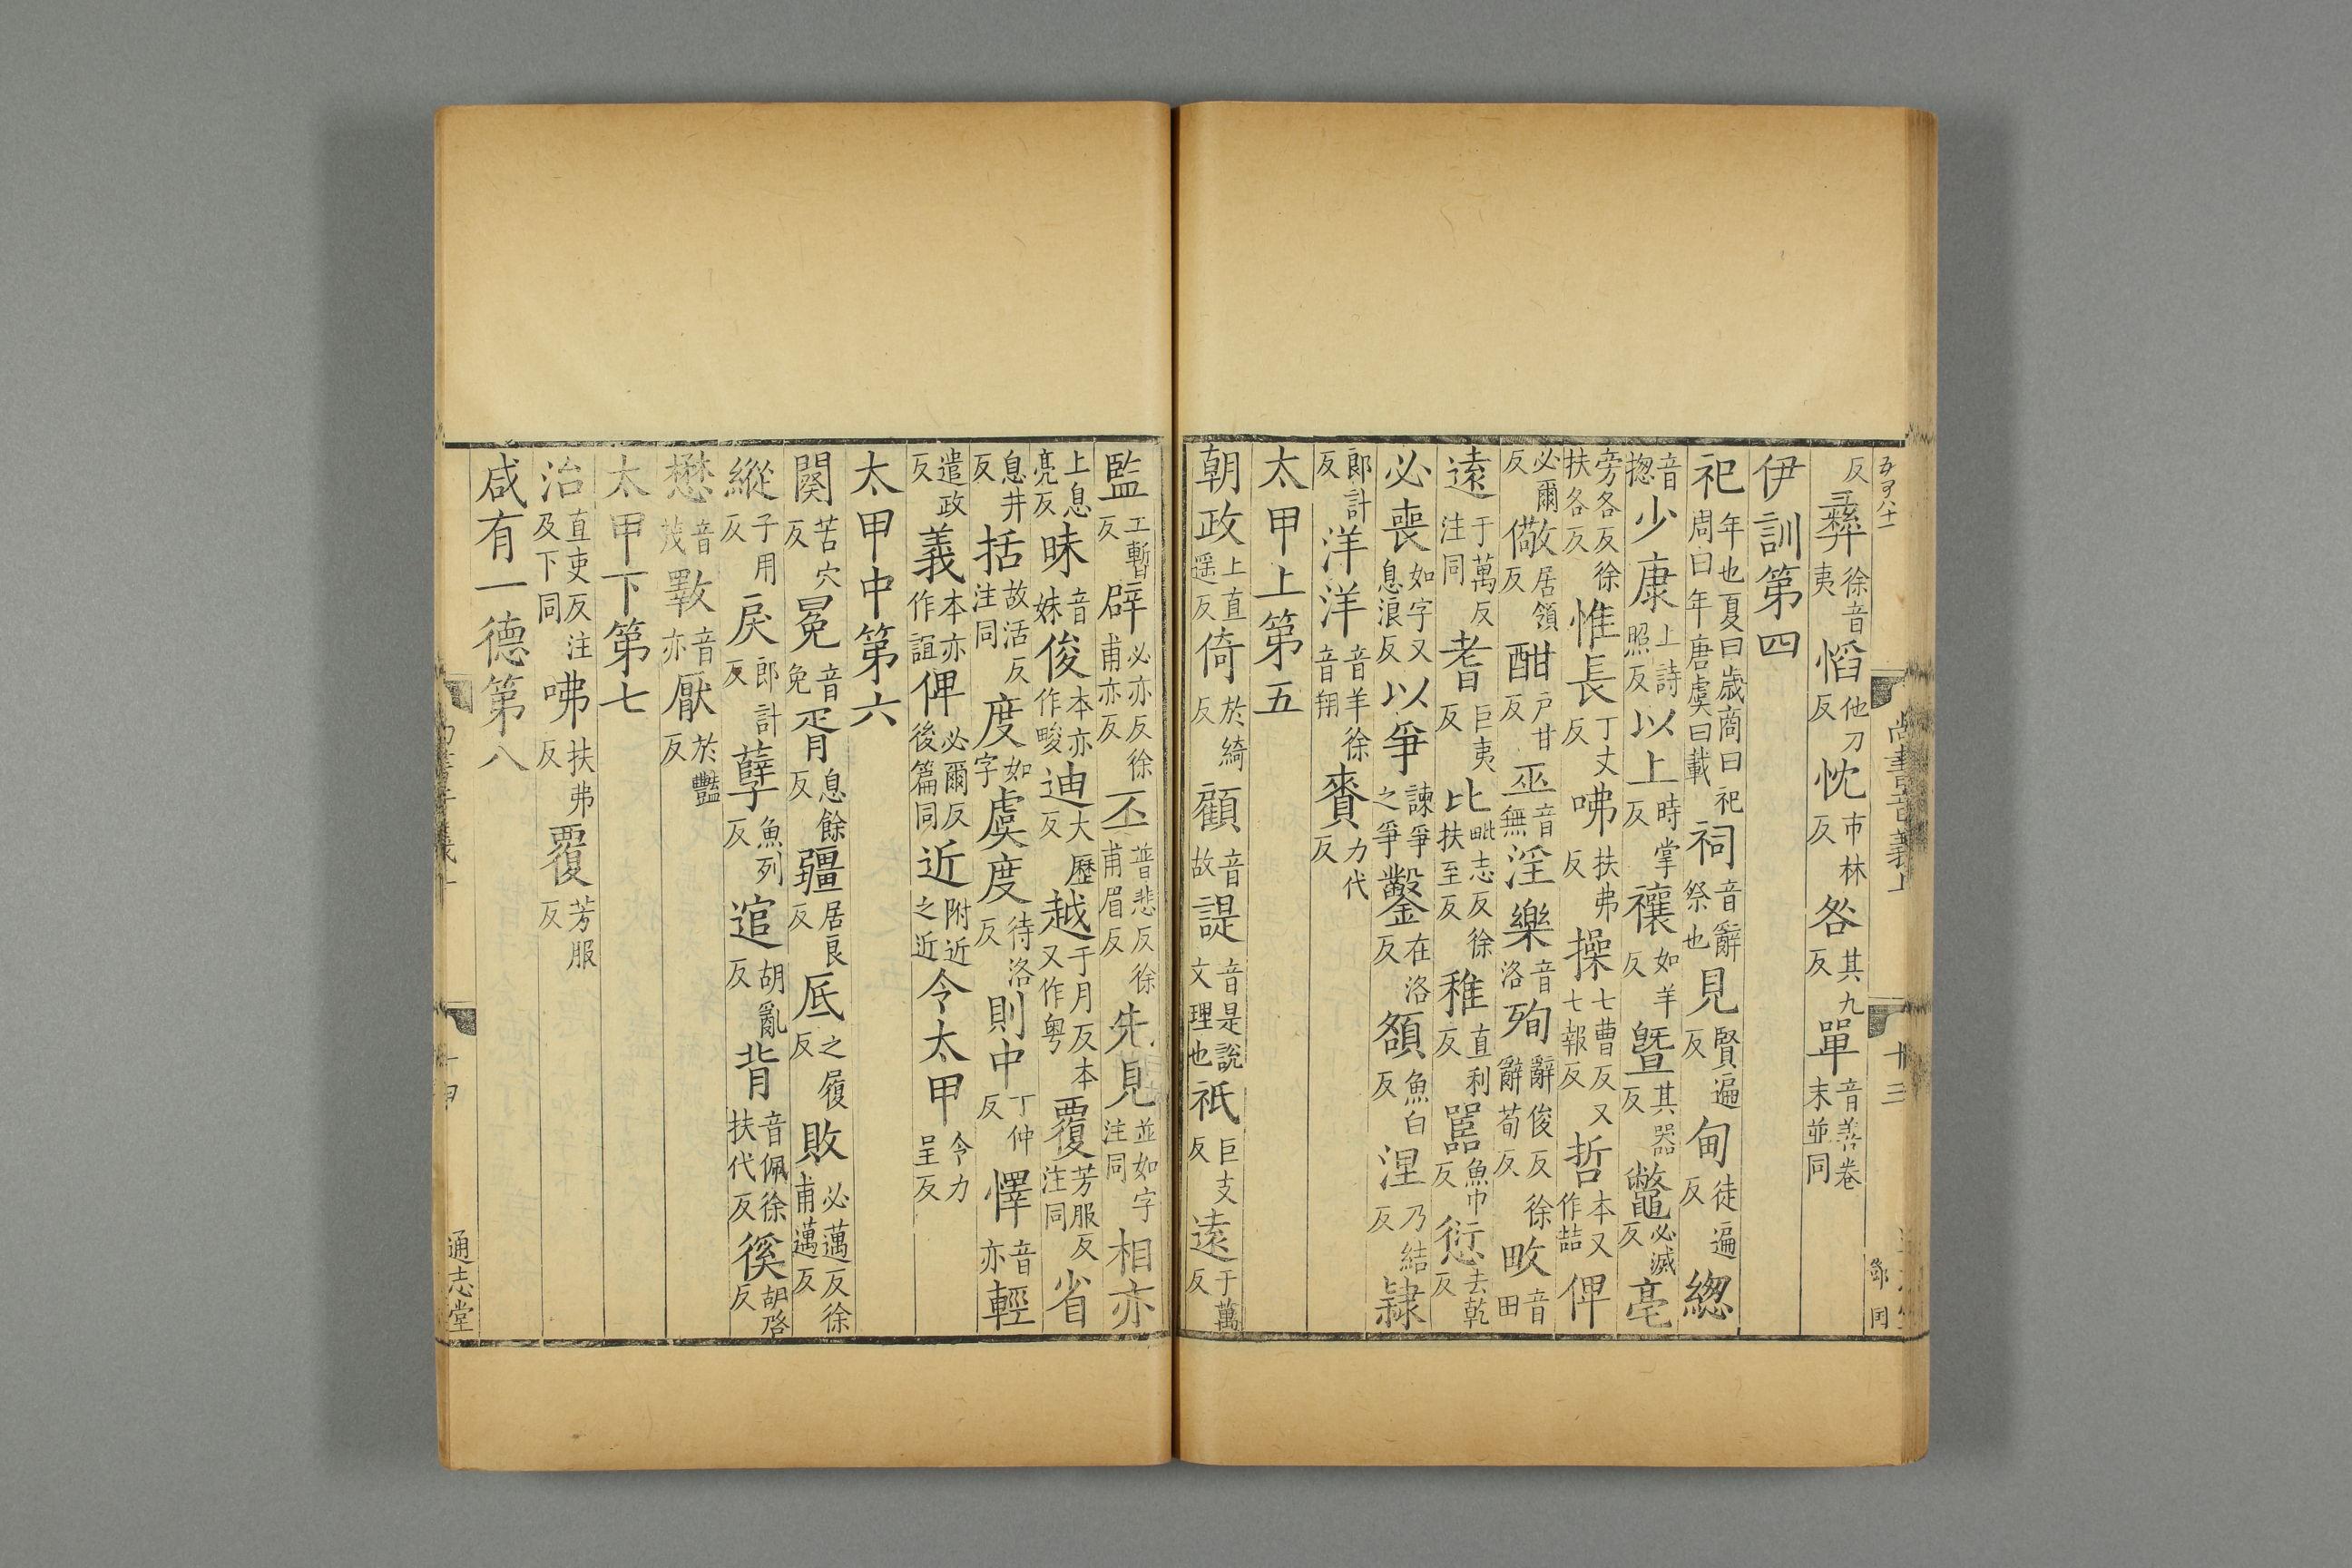 反彝徐音夷慆他刀反忱市林反咎其九反單音善卷末並同
伊訓第四
祀年也夏曰歲商曰祀周曰年唐虞曰載祠音辭祭也見賢遍反甸徒遍反緫
音揔少康上詩照反以上時掌反禳如羊反曁其器反鼈必滅反亳
旁各反徐扶各反惟長丁丈反咈扶弗反操七曹反又七報反哲本又作喆俾
必爾反儆居領反酣戶甘反巫音無淫樂音洛殉辭俊反徐辭荀反畋音田
遠于萬反注同耆巨夷反比毗志反徐扶至反稚直利反嚚魚巾反愆去乾反
必喪如字又息浪反以爭諫爭之爭鑿在洛反頟魚白反涅乃結反隷
郎計反洋洋音羊徐音翔賚力代反
太甲上第五
朝政上直遥反倚於綺反顧音故諟音是說文理也祇巨支反遠于萬反
監工暫反辟必亦反徐甫亦反丕普悲反徐甫眉反先見並如字注同相亦
上息亮反昧音妹俊本亦作畯迪大歷反越于月反本又作粤覆芳服反注同省
息井反括故活反注同度如字虞度待洛反則中丁仲反懌音亦輕
遣政反義本亦作誼俾必爾反後篇同近附近之近令太甲令力呈反
太甲中第六
闋苦穴反冕音免胥息餘反疆居良反厎之履反敗必邁反徐甫邁反
縱子用反戾郎計反孽魚列反逭胡亂反背音佩徐扶代反徯胡啓反
懋音茂斁音亦厭於豔反
太甲下第七
治直吏反注及下同咈扶弗反覆芳服反
咸有一德第八
尚書音義上
十三
通志堂